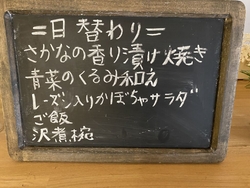 =日替わり=
さかなの香り漬け焼き
青菜のくるみ和え
レーズン入りかぼちゃサラダ
ご飯
沢煮椀